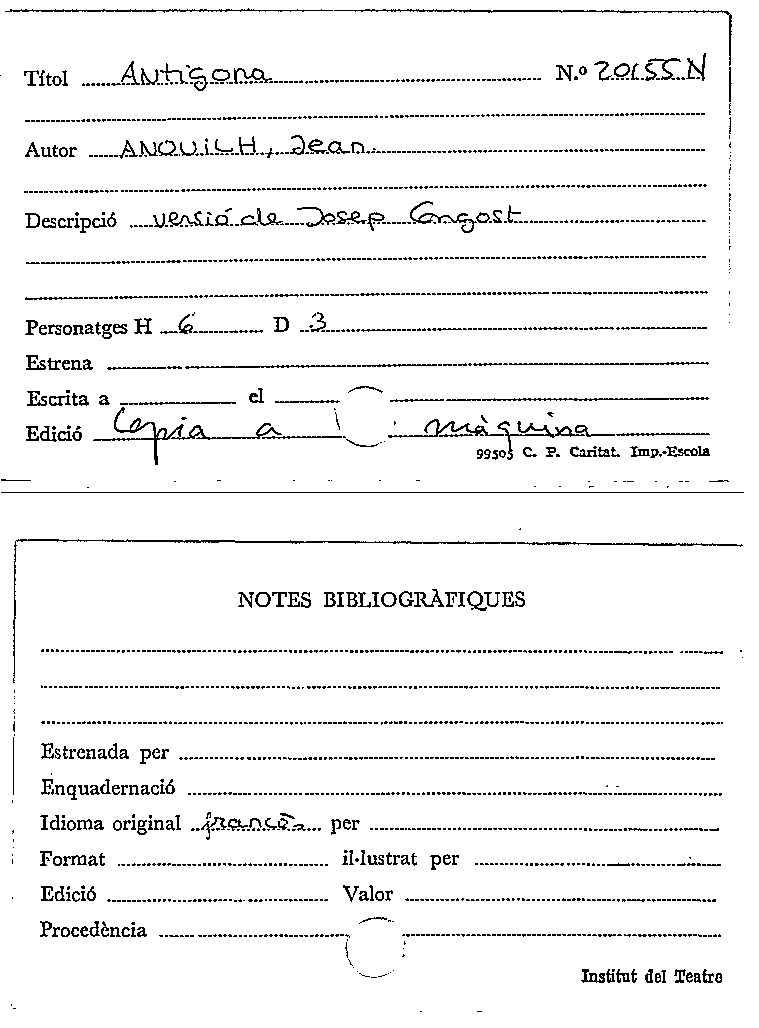 Títol Antígona N.º 20155 N
Autor ANOUILH, Jean.
Descripció versió de Josep Congost
Personatges H 6 D 3
Estrena
Escrita a el
Edició Copia a màquina
99505 C. P. Caritat. Imp.-Escola
NOTES BIBLIOGRÀFIQUES
Estrenada per
Enquadernació
Idioma original francès per
Format il·lustrat per
Edició Valor
Procedència
Institut del Teatre